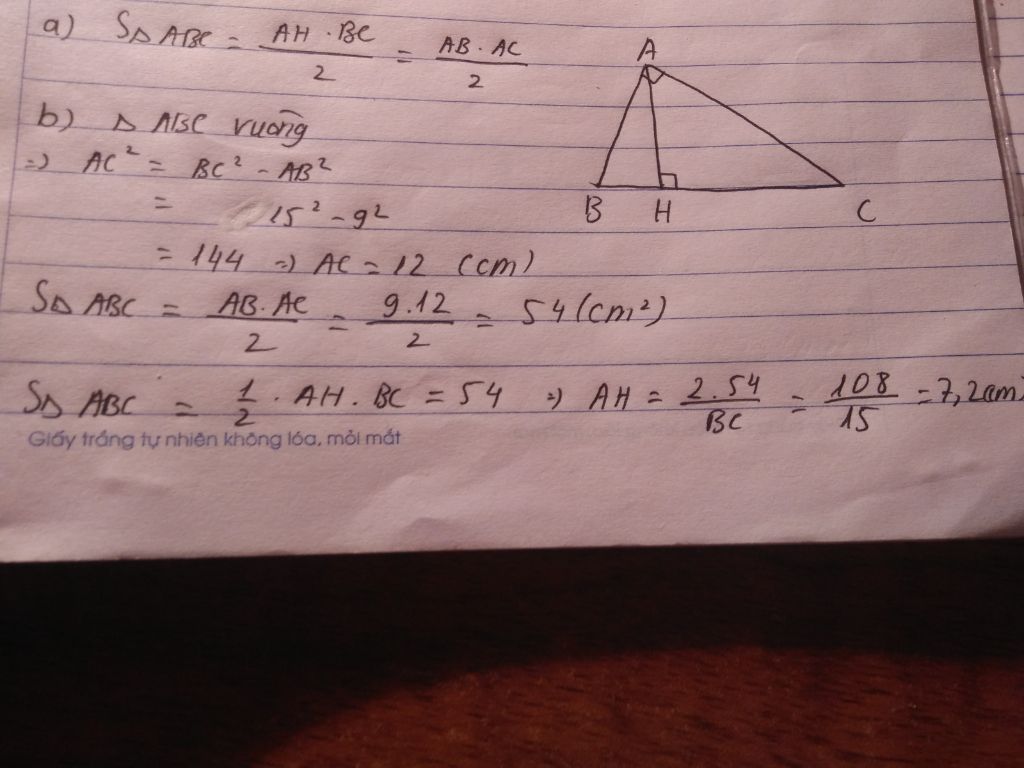 a) S△ABC = AH . BC / 2 = AB . AC / 2
b) △ ABC vuông
=> AC² = BC² - AB²
= 15² - 9²
= 144 => AC = 12 (cm)
S△ ABC = AB.AC / 2 = 9.12 / 2 = 54 (cm²)
S△ ABC = 1/2 . AH . BC = 54 => AH = 2.54 / BC = 108 / 15 = 7,2cm
Giấy trắng tự nhiên không lóa, mỏi mắt
A
B H C